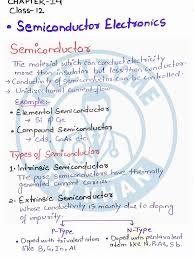 CHAPTER-14
Class-12
• Semiconductor Electronics
Semiconductor
The material which can conduct electricity
more than insulator but less than conductor
→ Conductivity of semiconductor can be controlled.
→ Unidirectional current flow
Example:-
• Elemental Semiconductor
→ Si & Ge
• Compound Semiconductor
→ CdS, GaAs etc
Types of Semiconductor
1. Intrinsic Semiconductor
The pure semiconductors have thermally
generated current carriers.
2. Extrinsic Semiconductor
whose conductivity is mainly due to doping
of impurity.
P-Type
N-Type
• Doped with trivalent atom
like B, Ga, In, Al
• Doped with pentavalent
atom like N, P, As, Sb.